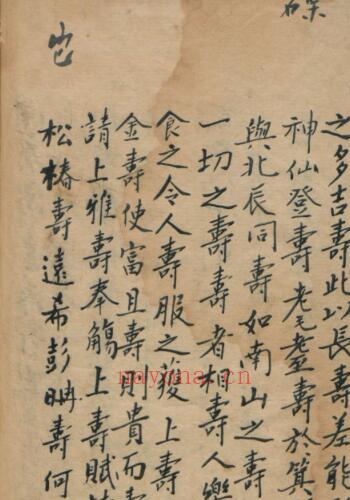 之多吉壽此以長壽差能
神仙登壽老耄壽於算
與北辰同壽如南山之壽
一切之壽壽者相壽人樂
食之令人壽服之獲上壽
金壽使富且壽則貴而壽
請上雅壽奉觴上壽賦
松椿壽遠希彭聃壽何